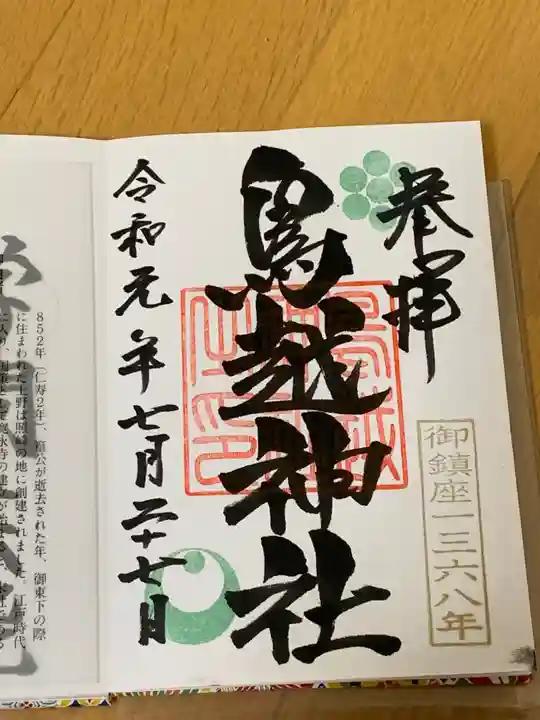 奉拝
御鎮座一三六八年
鳥越神社
令和元年七月二十七日
852年(仁寿2年)、篁公が逝去された年、御東下の際
に住まわれた上野は照崎の地に創建されました。江戸時代